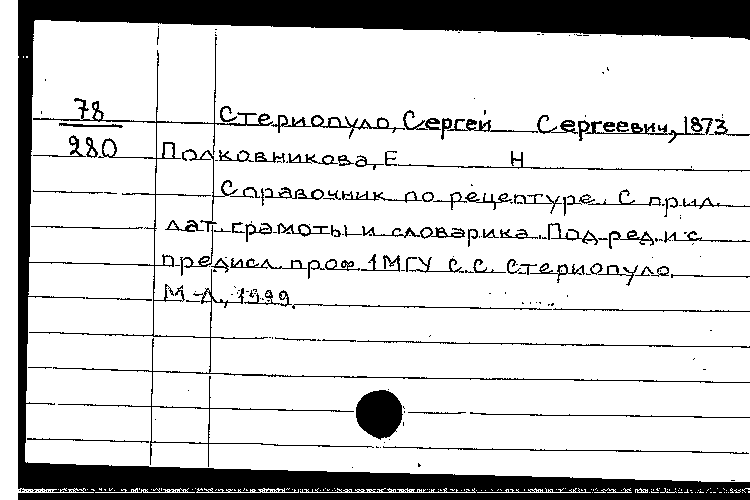 78
280
Стериопуло, Сергей Сергеевич, 1873
Полковникова, Е Н
Справочник по рецептуре. С прил.
лат. грамоты и словарика. Под ред. и с
предисл. проф. 1МГУ С.С. Стериопуло.
М.-Л.,